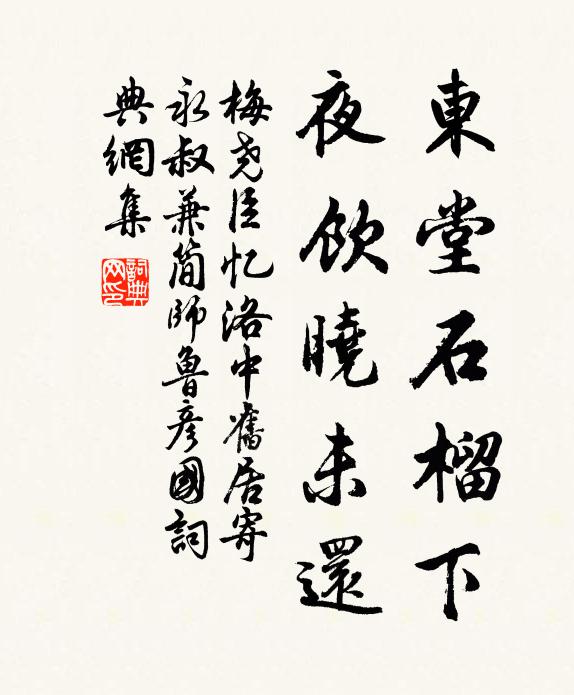 東堂石榴下
夜飲曉未還
梅尧臣忆洛中舊居寄
永叔兼简師魯彦國詞
典網集
詞典
网印